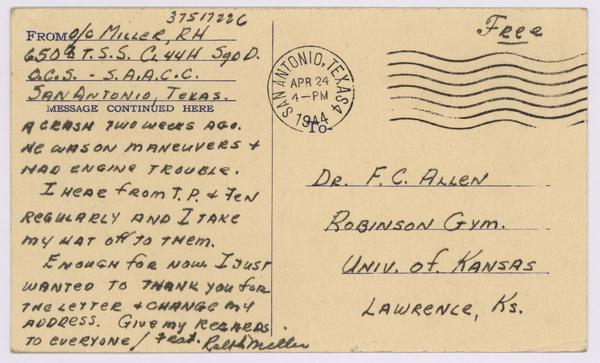 37517226
FROM O/C MILLER, RH
650th T.S.S. CL44H SqD D.
O.C.S. - S.A.A.C.C.
SAN ANTONIO, TEXAS.
MESSAGE CONTINUED HERE
A CRASH TWO WEEKS AGO.
HE WAS ON MANEUVERS +
HAD ENGINE TROUBLE.
I HEAR from T.P. & FEN
REGULARLY AND I TAKE
my HAT off TO THEM.
ENOUGH for NOW. I JUST
WANTED TO THANK YOU for
THE LETTER + CHANGE my
ADDRESS. GIVE my REGARDS
TO EVERYONE / Frat. Ralph Miller
Free
SAN ANTONIO, TEXAS 4
APR 24
4-PM
1944
To-
DR. F. C. ALLEN
ROBINSON GYM.
UNIV. of KANSAS
LAWRENCE, KS.